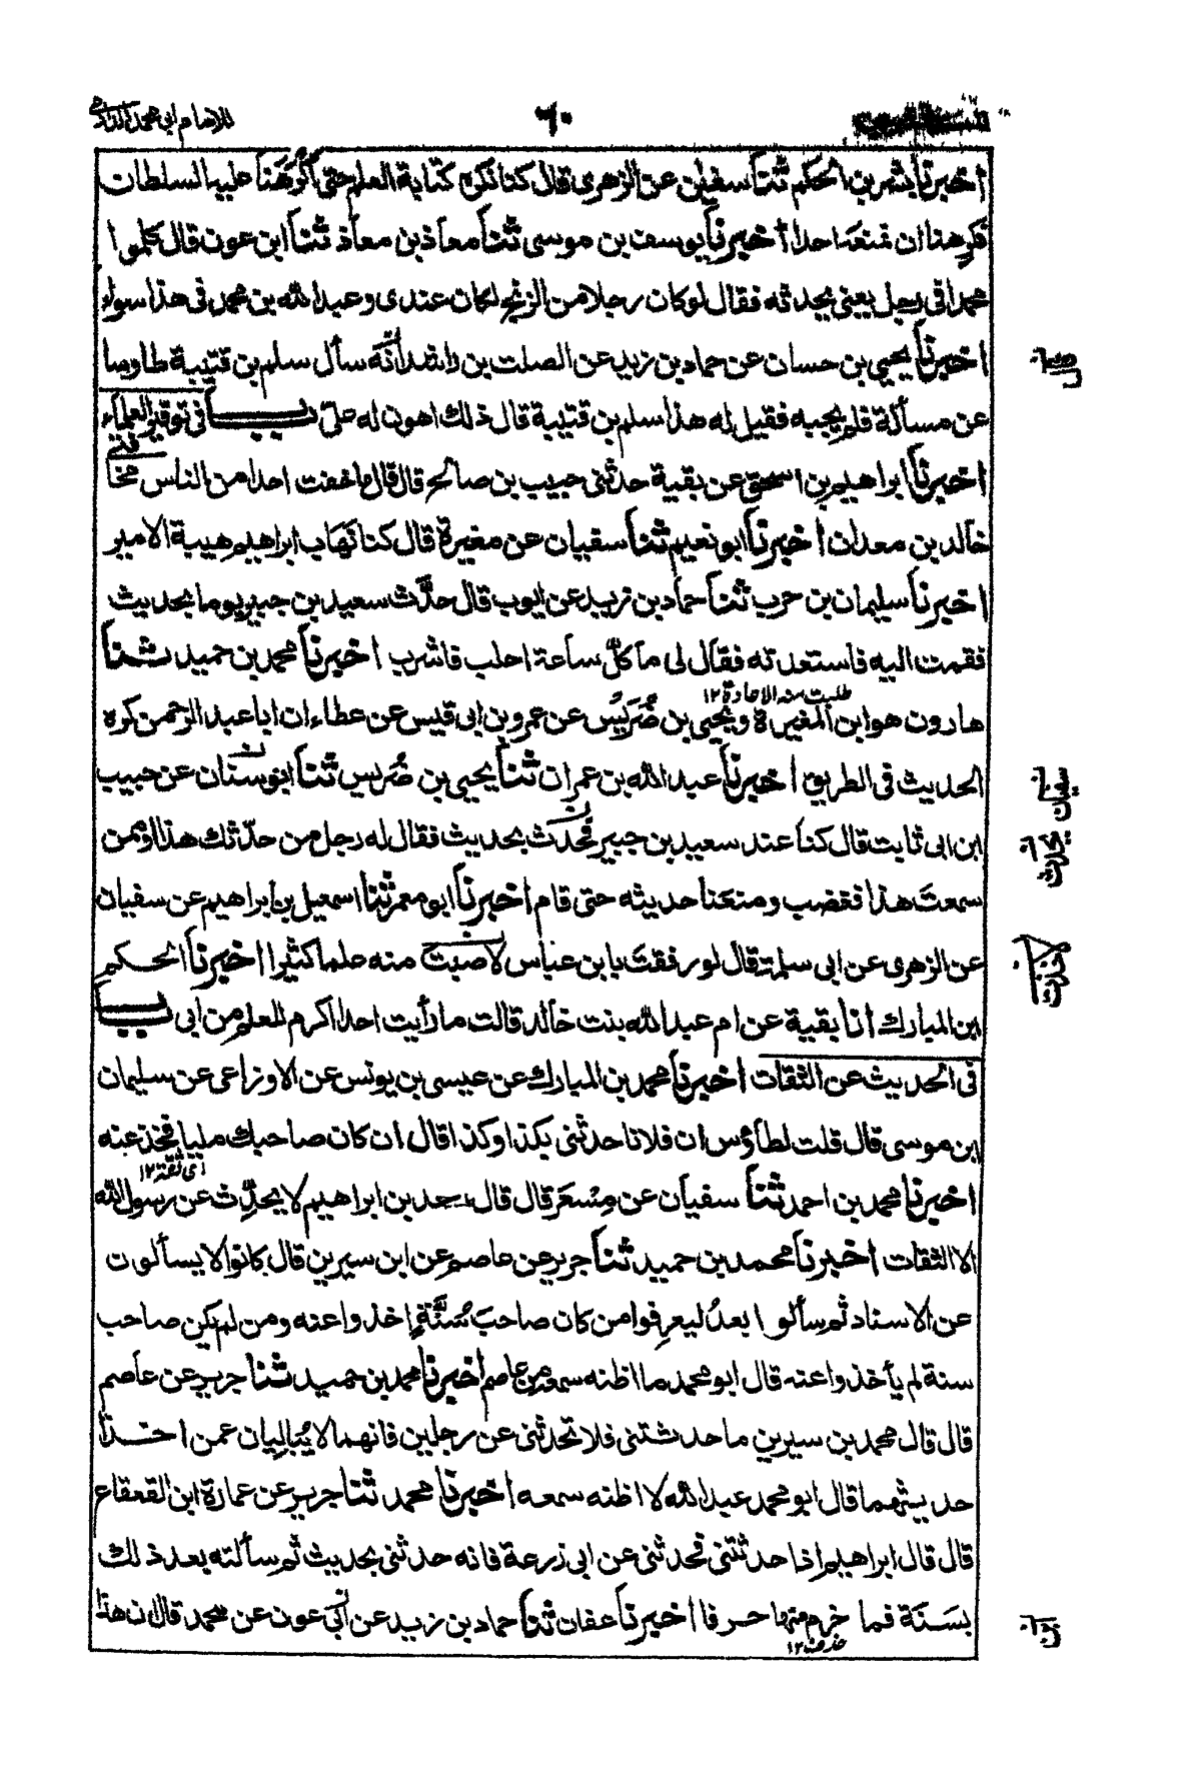 للامام ابى محمد الدارمى
٦٠
اخبرنا بشر بن الحكم ثنا سفيان عن الزهرى قال كنا نكره كتابة العلم حتى اكرهنا عليه السلطان
فكرهنا ان نمنعه احدا اخبرنا يوسف بن موسى ثنا معاذ بن معاذ ثنا ابن عون قال كلموا
محمدا فى رجل يعنى يحدثه فقال لو كان رجلا من الزنج لكان عندى وعبد الله بن محمد فى هذا سواء
اخبرنا يحيى بن حسان عن حماد بن زيد عن الصلت بن راشد انه سأل سلم بن قتيبة طاوسا
عن مسألة فلم يجبه فقيل له هذا سلم بن قتيبة قال ذلك اهون له علىّ باب فى توقير العلماء
اخبرنا ابراهيم بن اسحق عن بقية حدثنى حبيب بن صالح قال قال ما خفت احدا من الناس مخافتى
خالد بن معدان اخبرنا ابو نعيم ثنا سفيان عن مغيرة قال كنا نهاب ابراهيم هيبة الامير
اخبرنا سليمان بن حرب ثنا حماد بن زيد عن ايوب قال حدّث سعيد بن جبير يوما بحديث
فقمت اليه فاستعدته فقال لى ما كلّ ساعة احلب فاشرب اخبرنا محمد بن حميد ثنا
طلبت منه الاعادة ١٢
هارون هو ابن المغيرة ويحيى بن ضُرَيْس عن عمرو بن ابى قيس عن عطاء ان ابا عبد الرحمن كره
الحديث فى الطريق اخبرنا عبد الله بن عمران ثنا يحيى بن ضُريس ثنا ابو سنان عن حبيب
سفيان
ابن ابى ثابت قال كنا عند سعيد بن جبير فحدث بحديث فقال له رجل من حدّثك هذا او ممن
يحدث
سمعت هذا فغضب ومنعنا حديثه حتى قام اخبرنا ابو معمر ثنا اسمعيل بن ابراهيم عن سفيان
عن الزهرى عن ابى سلمة قال لو رفقت بابن عباس لاصبت منه علما كثيرا اخبرنا الحكم
لاخذت
ابن المبارك انا بقية عن ام عبد الله بنت خالد قالت ما رأيت احدا اكرم للعلم من ابى باب
فى الحديث عن الثقات اخبرنا محمد بن المبارك عن عيسى بن يونس عن الاوزاعى عن سليمان
ابن موسى قال قلت لطاؤس ان فلانا حدثنى بكذا وكذا قال ان كان صاحبك مليا فخذ عنه
اى ثقة ١٢
اخبرنا محمد بن احمد ثنا سفيان عن مِسْعَر قال قال سعد بن ابراهيم لا يحدِّث عن رسول الله
الا الثقات اخبرنا محمد بن حميد ثنا جرير عن عاصم عن ابن سيرين قال كانوا لا يسألون
عن الاسناد ثم سألوا بعدُ ليعرفوا من كان صاحبَ سُنَّةٍ اخذوا عنه ومن لم يكن صاحب
سنة لم يأخذوا عنه قال ابو محمد ما اظنه سمعه من عاصم اخبرنا محمد بن حميد ثنا جرير عن عاصم
قال قال محمد بن سيرين ما حدثتنى فلا تحدثنى عن رجلين فانهما لا يُبَالِيان عمن اخذا
حديثهما قال ابو محمد عبد الله لا اظنه سمعه اخبرنا محمد ثنا جرير عن عمارة ابن القعقاع
قال قال ابراهيم اذا حدثتنى فحدثنى عن ابى زرعة فانه حدثنى بحديث ثم سألته بعد ذلك
بسَنَة فما خرم منها حرفا اخبرنا عفان ثنا حماد بن زيد عن ابى عون عن محمد قال ان هذا
حذف ١٢
ابن